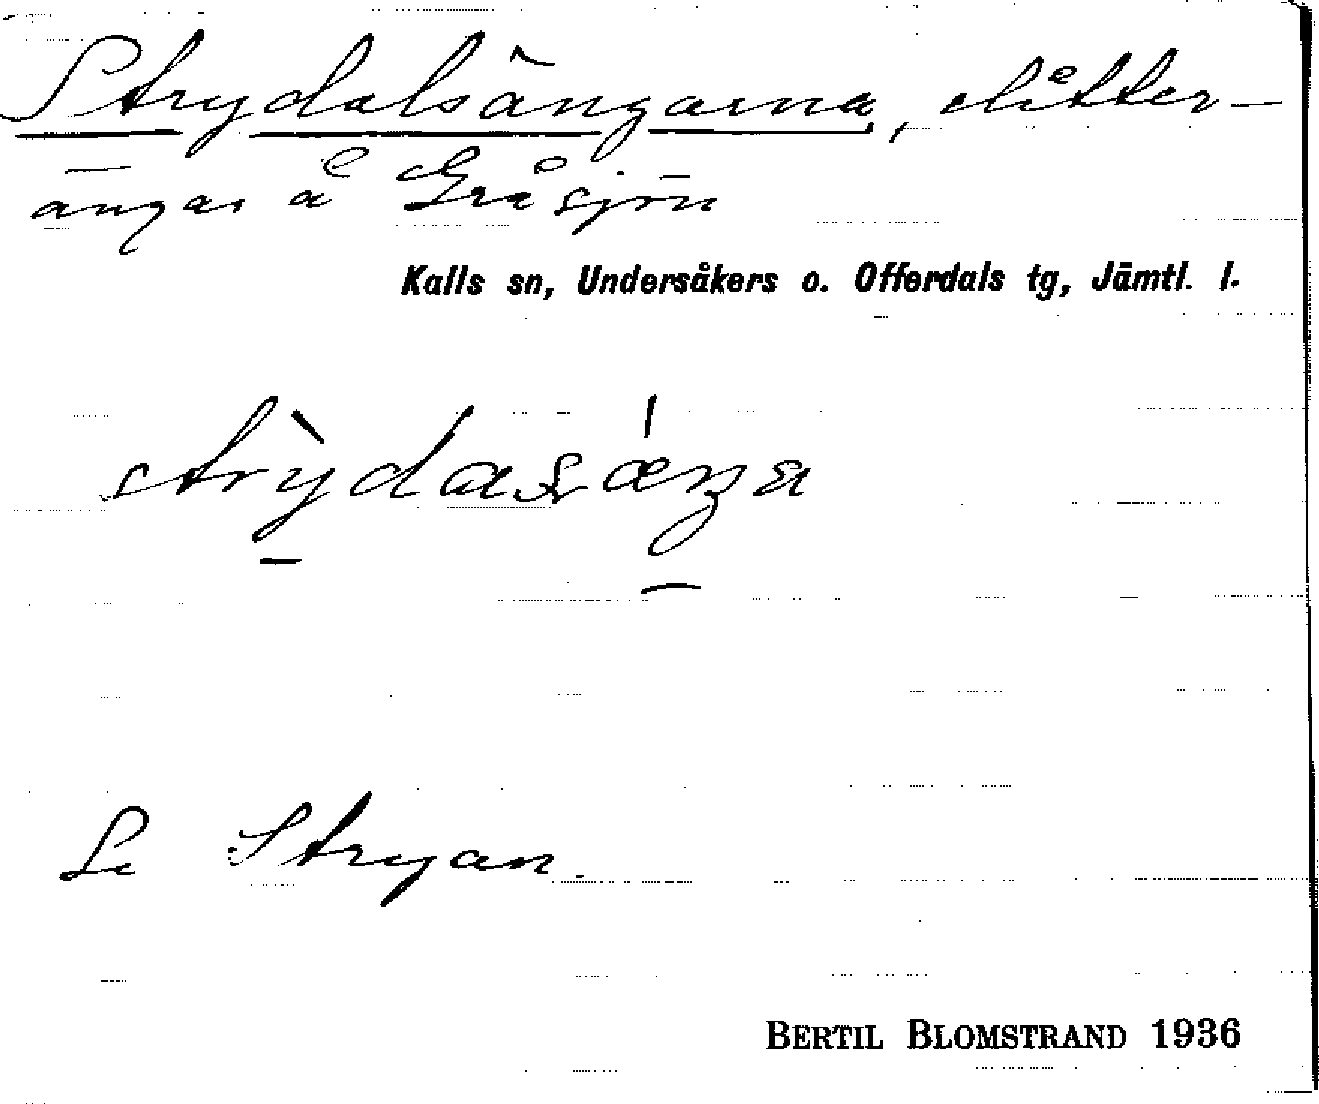 Strydalsängarna, slåtter-
ängar å Gråsjön
Kalls sn, Undersåkers o. Offerdals tg, Jämtl. l.
strỳdasǽŋa
Se Stryan.
BERTIL BLOMSTRAND 1936